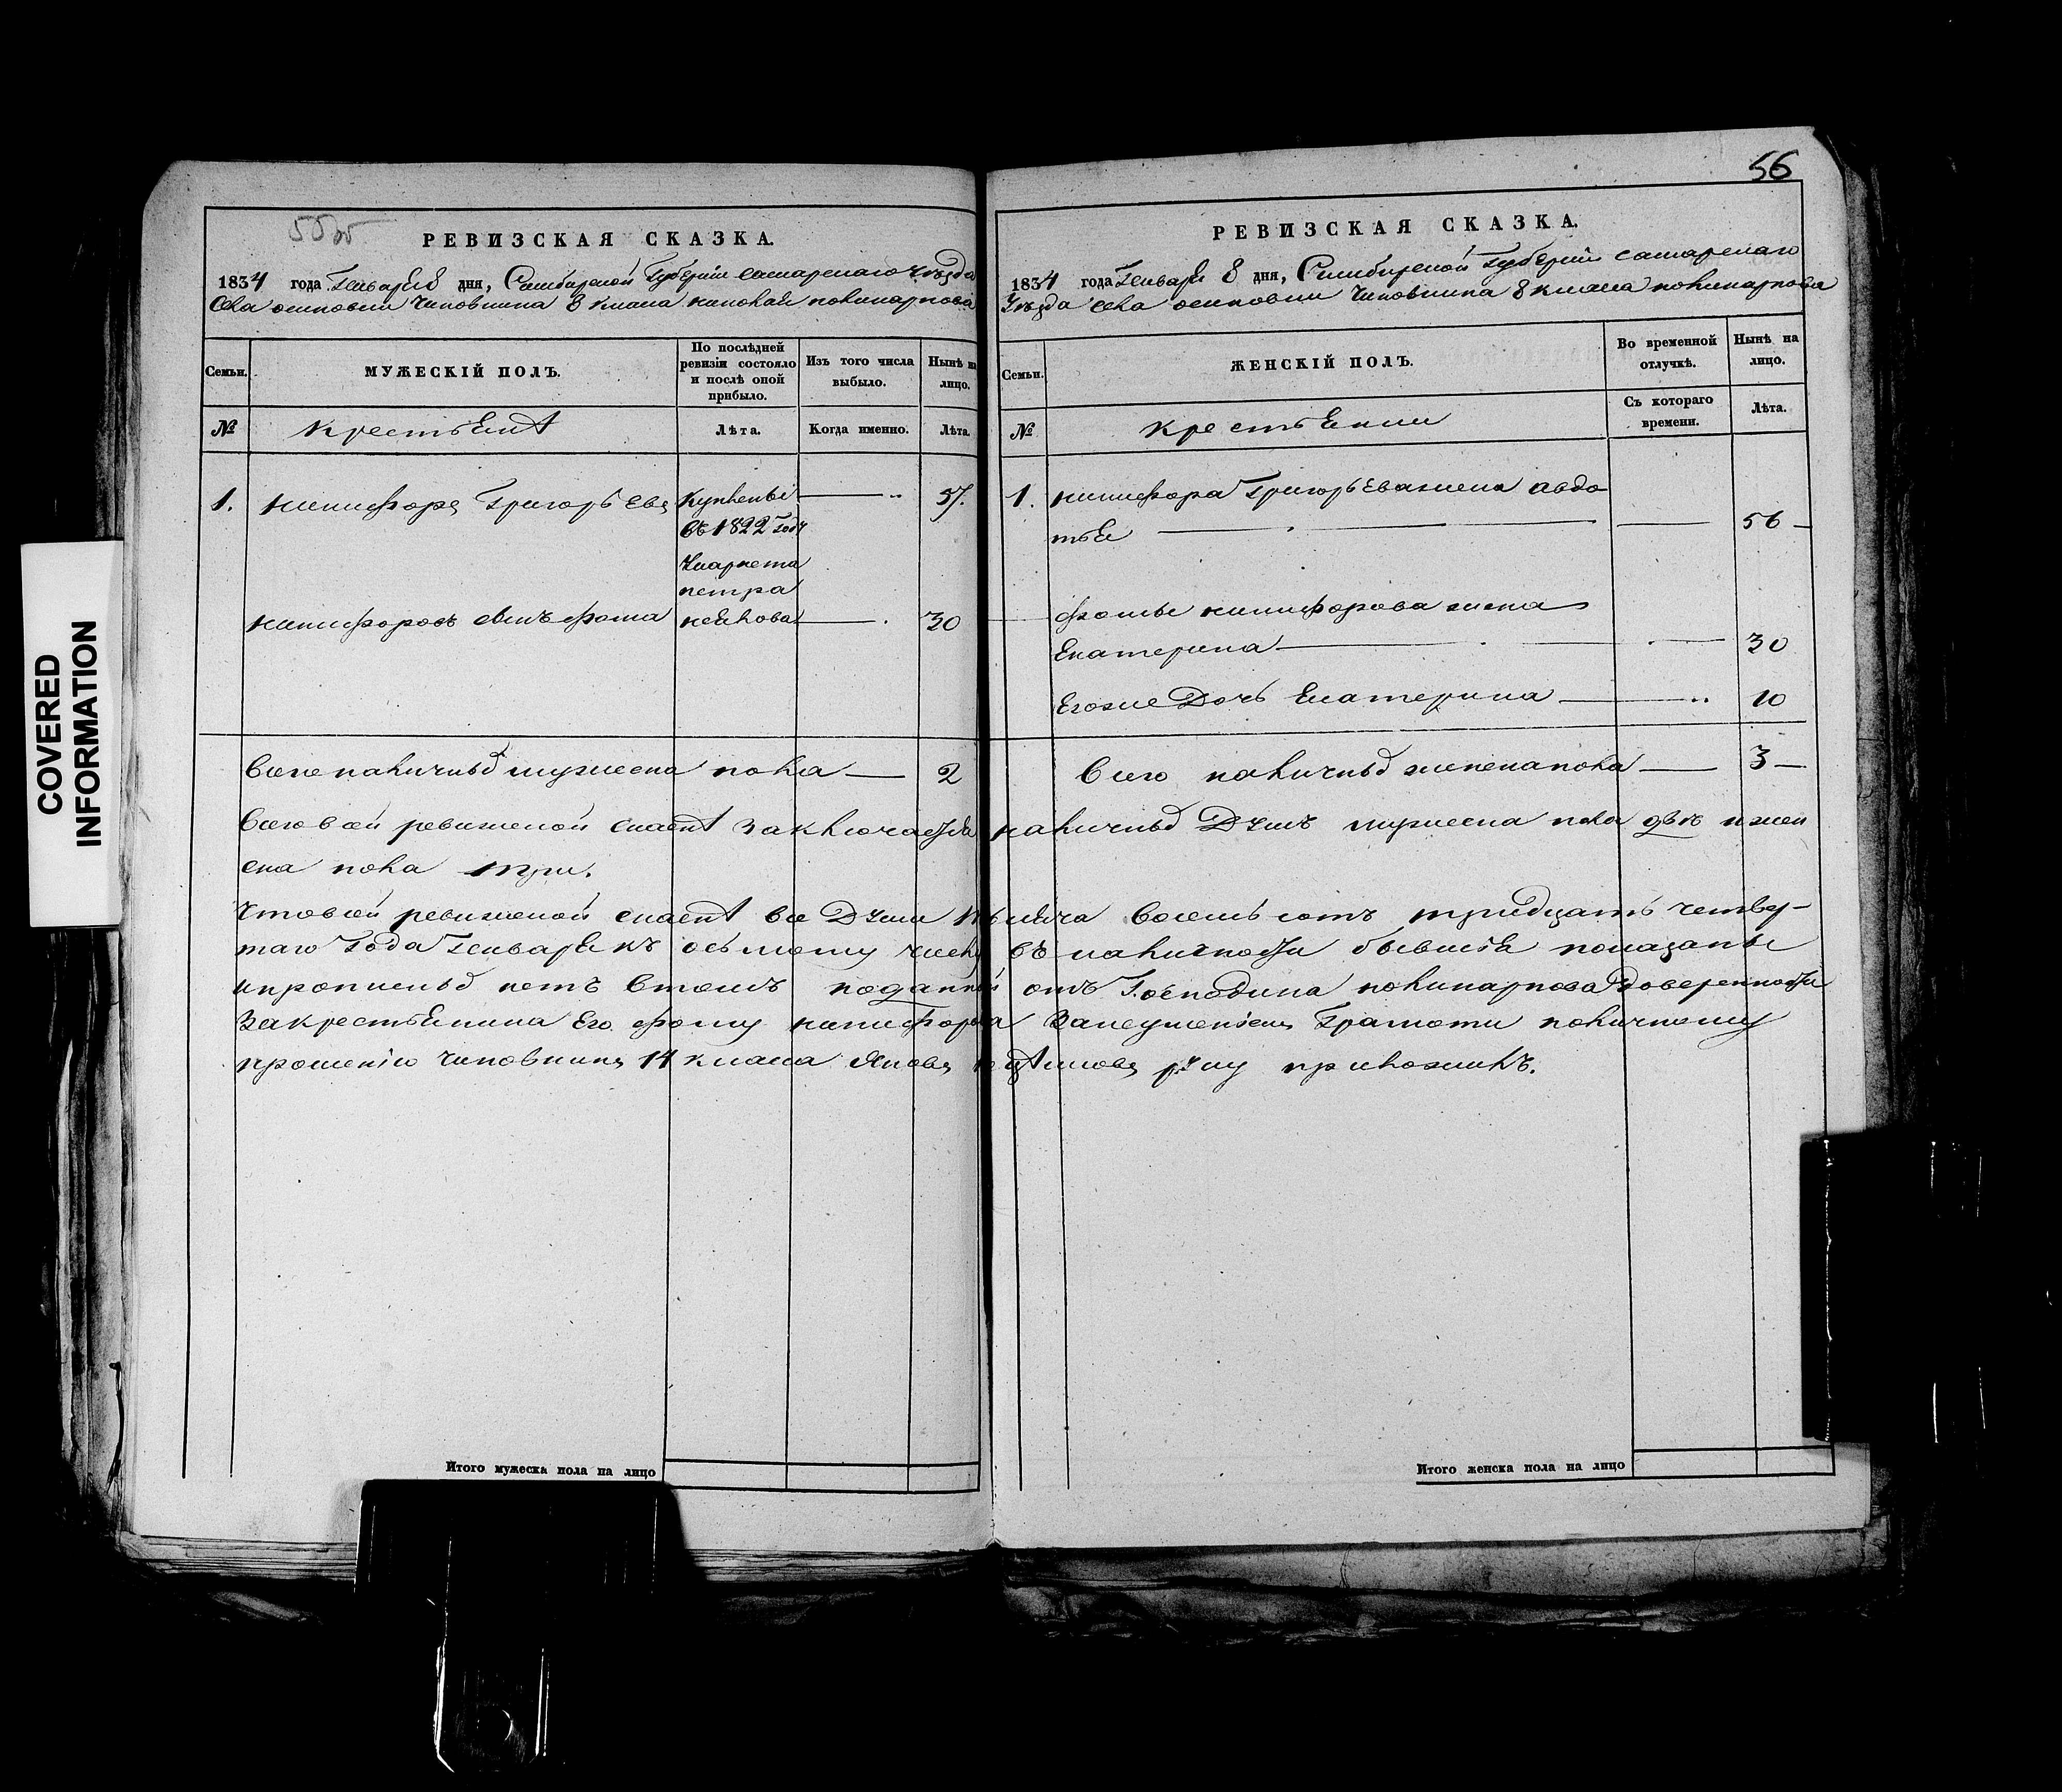 COVERED
INFORMATION
55об
РЕВИЗСКАЯ СКАЗКА.
1834 года Генваря 8 дня, Симбирской Губернии самарскаго уезда
села осиповки Чиновника 8 класса николая поликарпова
Семьи.
МУЖЕСКІЙ ПОЛЪ.
По послѣдней
ревизіи состояло
и послѣ оной
прибыло.
Изъ того числа
выбыло.
Нынѣ на
лицо.
№
крестьяне
Лѣта.
Когда именно.
Лѣта.
1. никифоръ Григорьевъ
купленые
въ 1822 году
петра
57.
никифоровъ сынъ фома
30
Всего наличныхъ мужеска пола — 2
56
РЕВИЗСКАЯ СКАЗКА.
1834 года Генваря 8 дня, Симбирской Губернии самарскаго
Уезда села осиповки Чиновника 8 класса поликарпова
Семьи.
ЖЕНСКІЙ ПОЛЪ.
Во временной
отлучкѣ.
Нынѣ на
лицо.
№
крестьянки
Съ котораго
времени.
Лѣта.
1. никифора Григорьева жена авдо
тья — 56 —
фомы никифорова жена
Екатерина — 30
Егоже Дочь Екатерина — 10
Всего наличныхъ женска пола — 3 —
Всего в сей ревижской сказке заключается наличныхъ Душъ мужеска пола две и жен
ска пола три.
Что в сей ревижской сказке все Души тысяча восемьсотъ тридцать четвер-
таго Года Генваря къ осьмому числу въ наличности бывшия показаны
и прописныхъ нетъ в томъ поданной отъ Господина поликарпова Доверенности
За крестьянина Его фому никифорова За неумениемъ Грамоти поличному
прошению чиновникъ 14 класса Яковъ руку приложилъ.
Итого мужеска пола на лицо
Итого женска пола на лицо